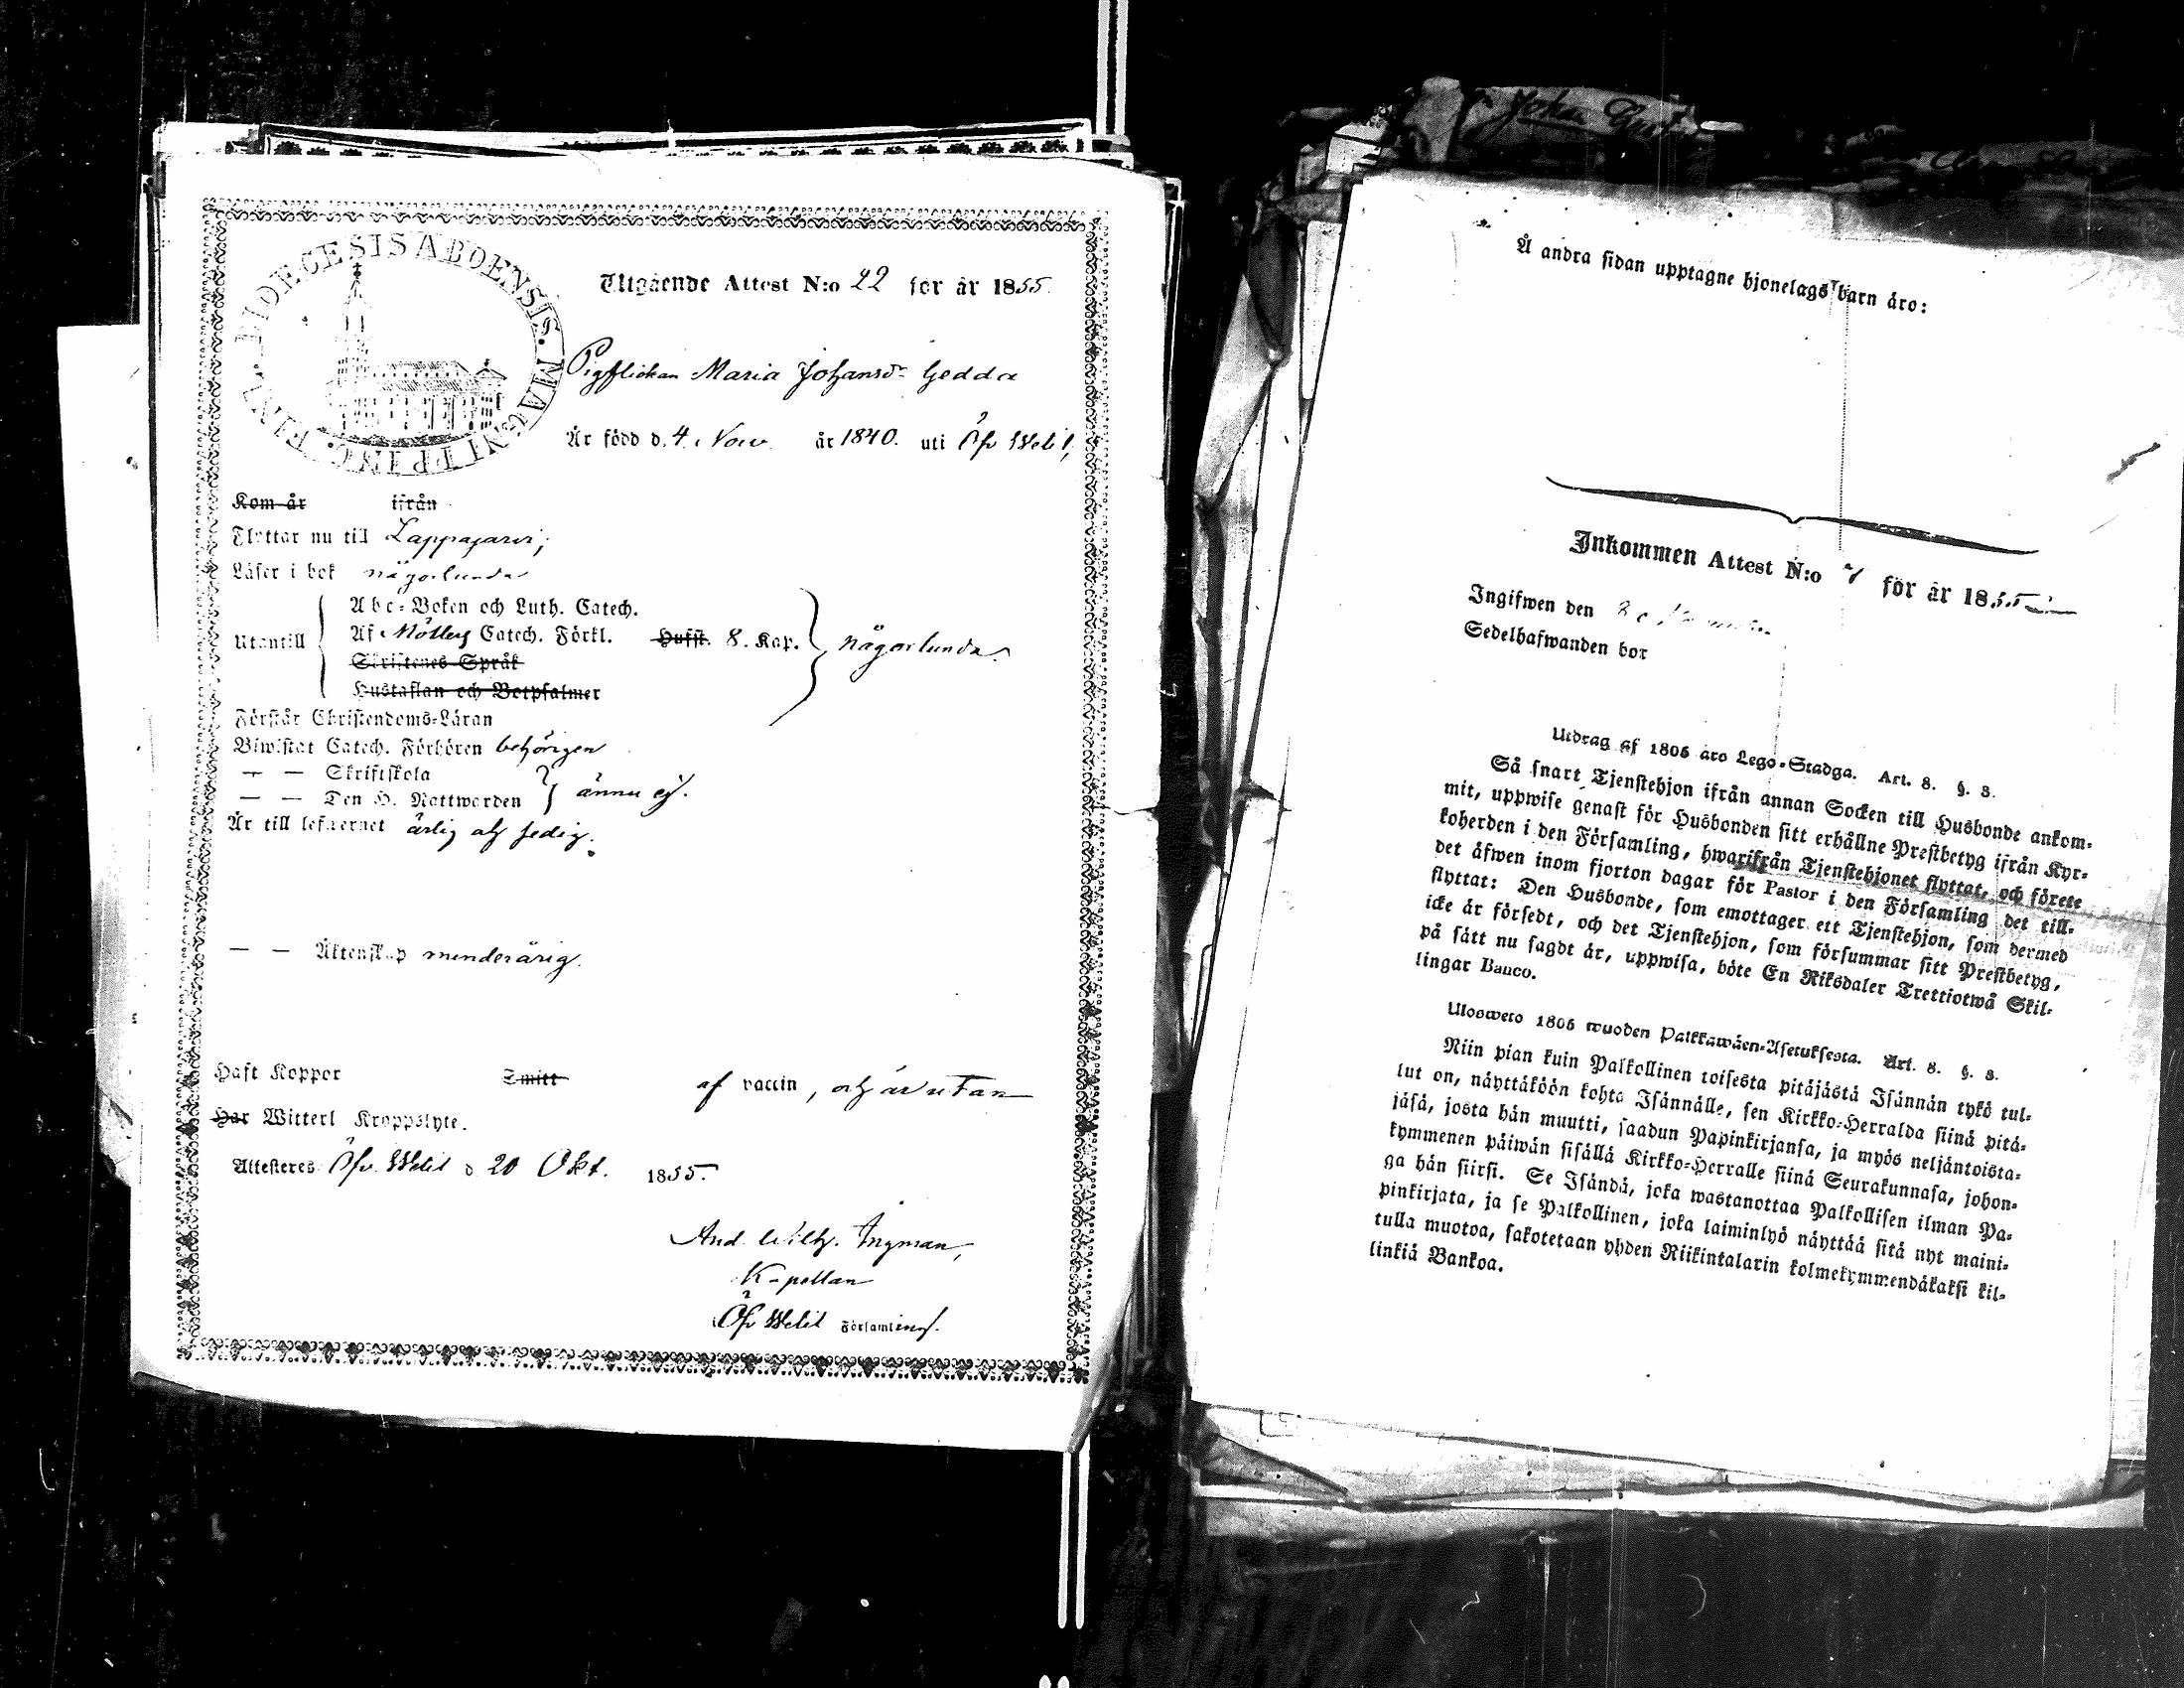 DIOECESIS ABOENSIS. MAGNI PRINC. FINL.
Utgående Attest N:o 22 för år 1855.
Pigflickan Maria Johansdr Gedda
Är född d. 4 Nov. år 1840. uti Öfv Wetil,
Kom år ifrån
Flyttar nu till Lappajärvi;
Läser i bok någorlunda
Utantill
Abc-Boken och Luth. Catech.
Af Möllers Catech. Förkl. Hufst. 8. Kap.
någorlunda.
Skriftenes Språk
Hustaflan och Botpsalmer
Förstår Christendoms-Läran
Biwistat Catech. Förhören behörigen
— — Skriftskola
— — Den H. Nattwarden
ännu ej.
Är till lefwernet ärlig och sedig.
— — Äktenskap minderårig.
Haft Koppor Smitt af vaccin, och är utan
Har Witterl Kroppslyte.
Attesteres Öfv. Wetil d 20 Okt. 1855.
And. Wilh. Ingman,
Kapellan
Öfv Wetil Församling.
Johan
Å andra sidan upptagne hjonelags barn äro:
Inkommen Attest N:o för år 1855
Ingifwen den
Sedelhafwanden bor
Utdrag af 1805 års Lego-Stadga. Art. 8. §. 3.
Så snart Tjenstehjon ifrån annan Socken till Husbonde ankom-
mit, uppwise genast för Husbonden sitt erhållne Prestbetyg ifrån Kyr-
koherden i den Församling, hwarifrån Tjenstehjonet flyttat, och förete
det äfwen inom fjorton dagar för Pastor i den Församling det till-
flyttat: Den Husbonde, som emottager ett Tjenstehjon, som dermed
icke är försedt, och det Tjenstehjon, som försummar sitt Prestbetyg,
på sätt nu sagdt är, uppwisa, böte En Riksdaler Trettiotwå Skil-
lingar Banco.
Ulosweto 1805 wuoden Palkkawäen-Asetuksesta. Art. 8. §. 3.
Niin pian kuin Palkollinen toisesta pitäjästä Isännän tykö tul-
lut on, näyttäköön kohta Isännälle, sen Kirkko-Herralda siinä pitä-
jäsä, josta hän muutti, saadun Papinkirjansa, ja myös neljäntoista-
kymmenen päiwän sisällä Kirkko-Herralle siinä Seurakunnasa, johon-
ga hän siirsi. Se Isändä, joka wastanottaa Palkollisen ilman Pa-
pinkirjata, ja se Palkollinen, joka laiminlyö näyttää sitä nyt maini-
tulla muotoa, sakotetaan yhden Riikintalarin kolmekymmendäkaksi kil-
linkiä Bankoa.